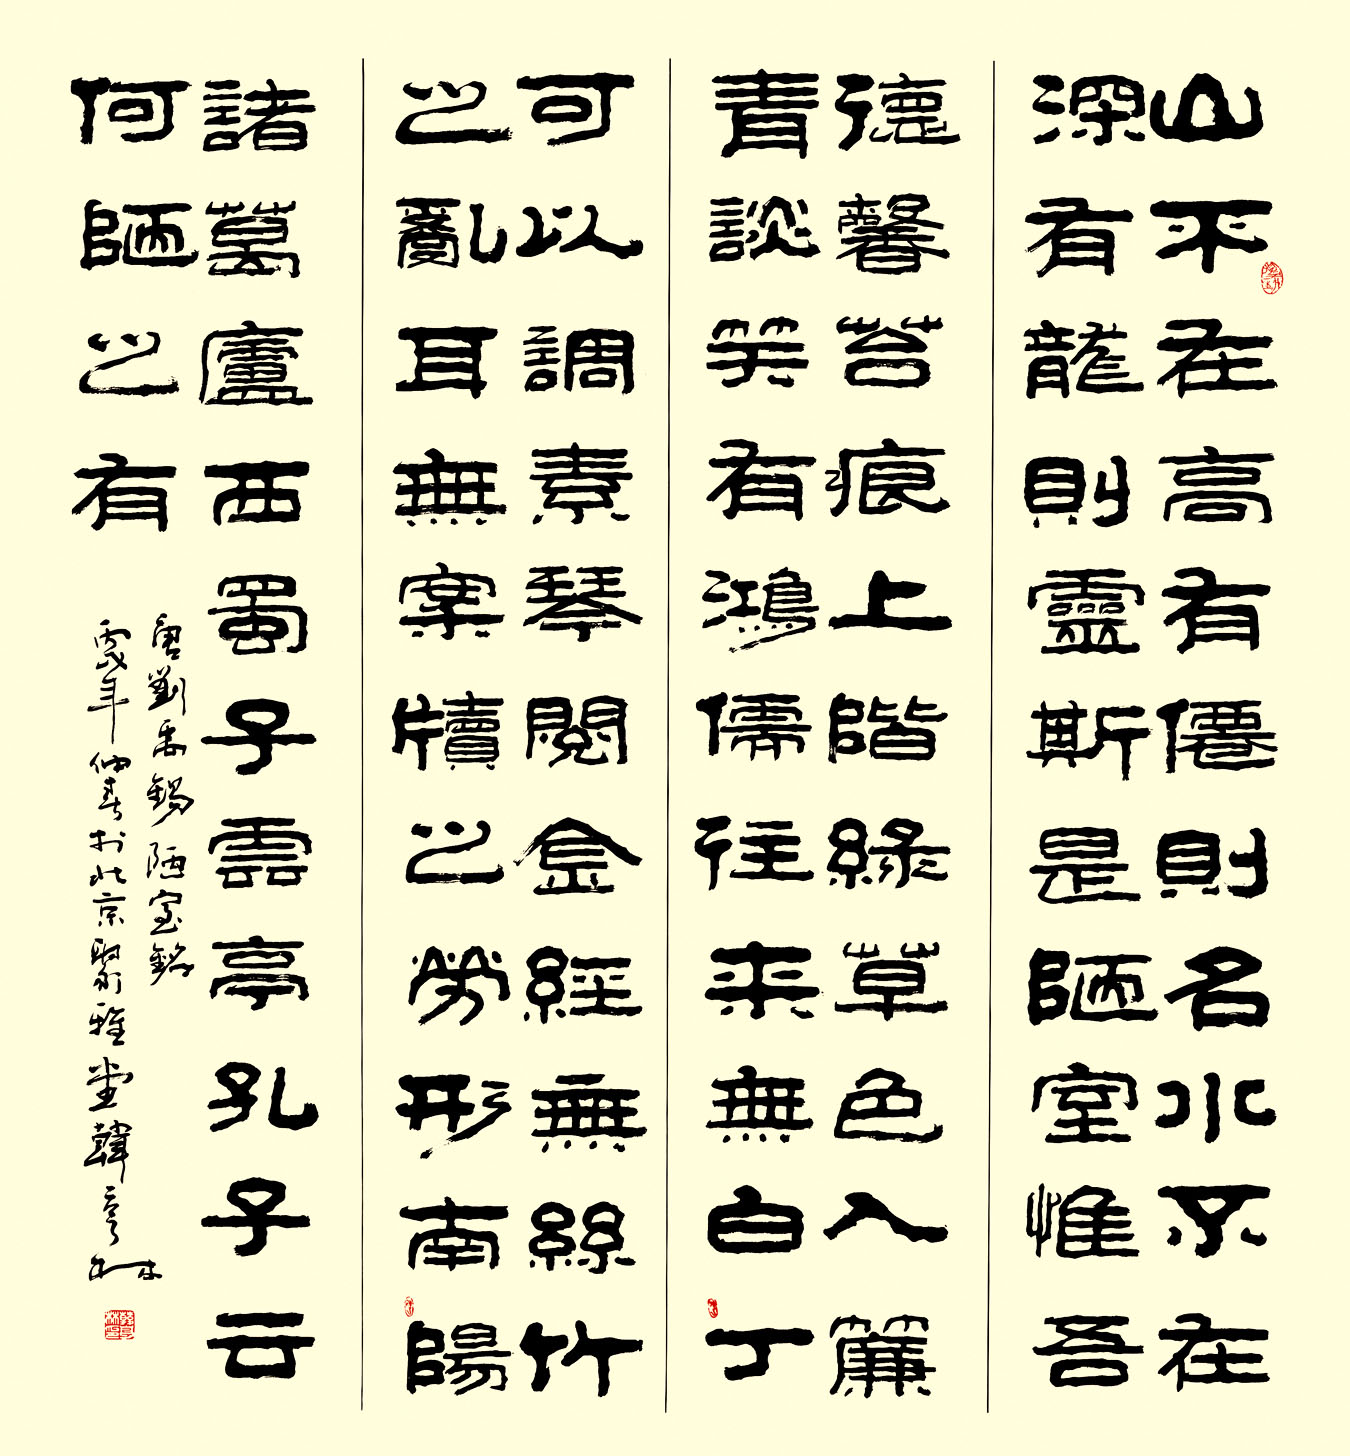 山不在高有僊則名水不在
深有龍則靈斯是陋室惟吾
德馨苔痕上階緑草色入簾
青談笑有鴻儒往来無白丁
可以調素琴閱金經無絲竹
之亂耳無案牘之勞形南陽
諸葛廬西蜀子雲亭孔子云
何陋之有
唐劉禹錫陋室銘
年仲春於北京聚雅堂韓